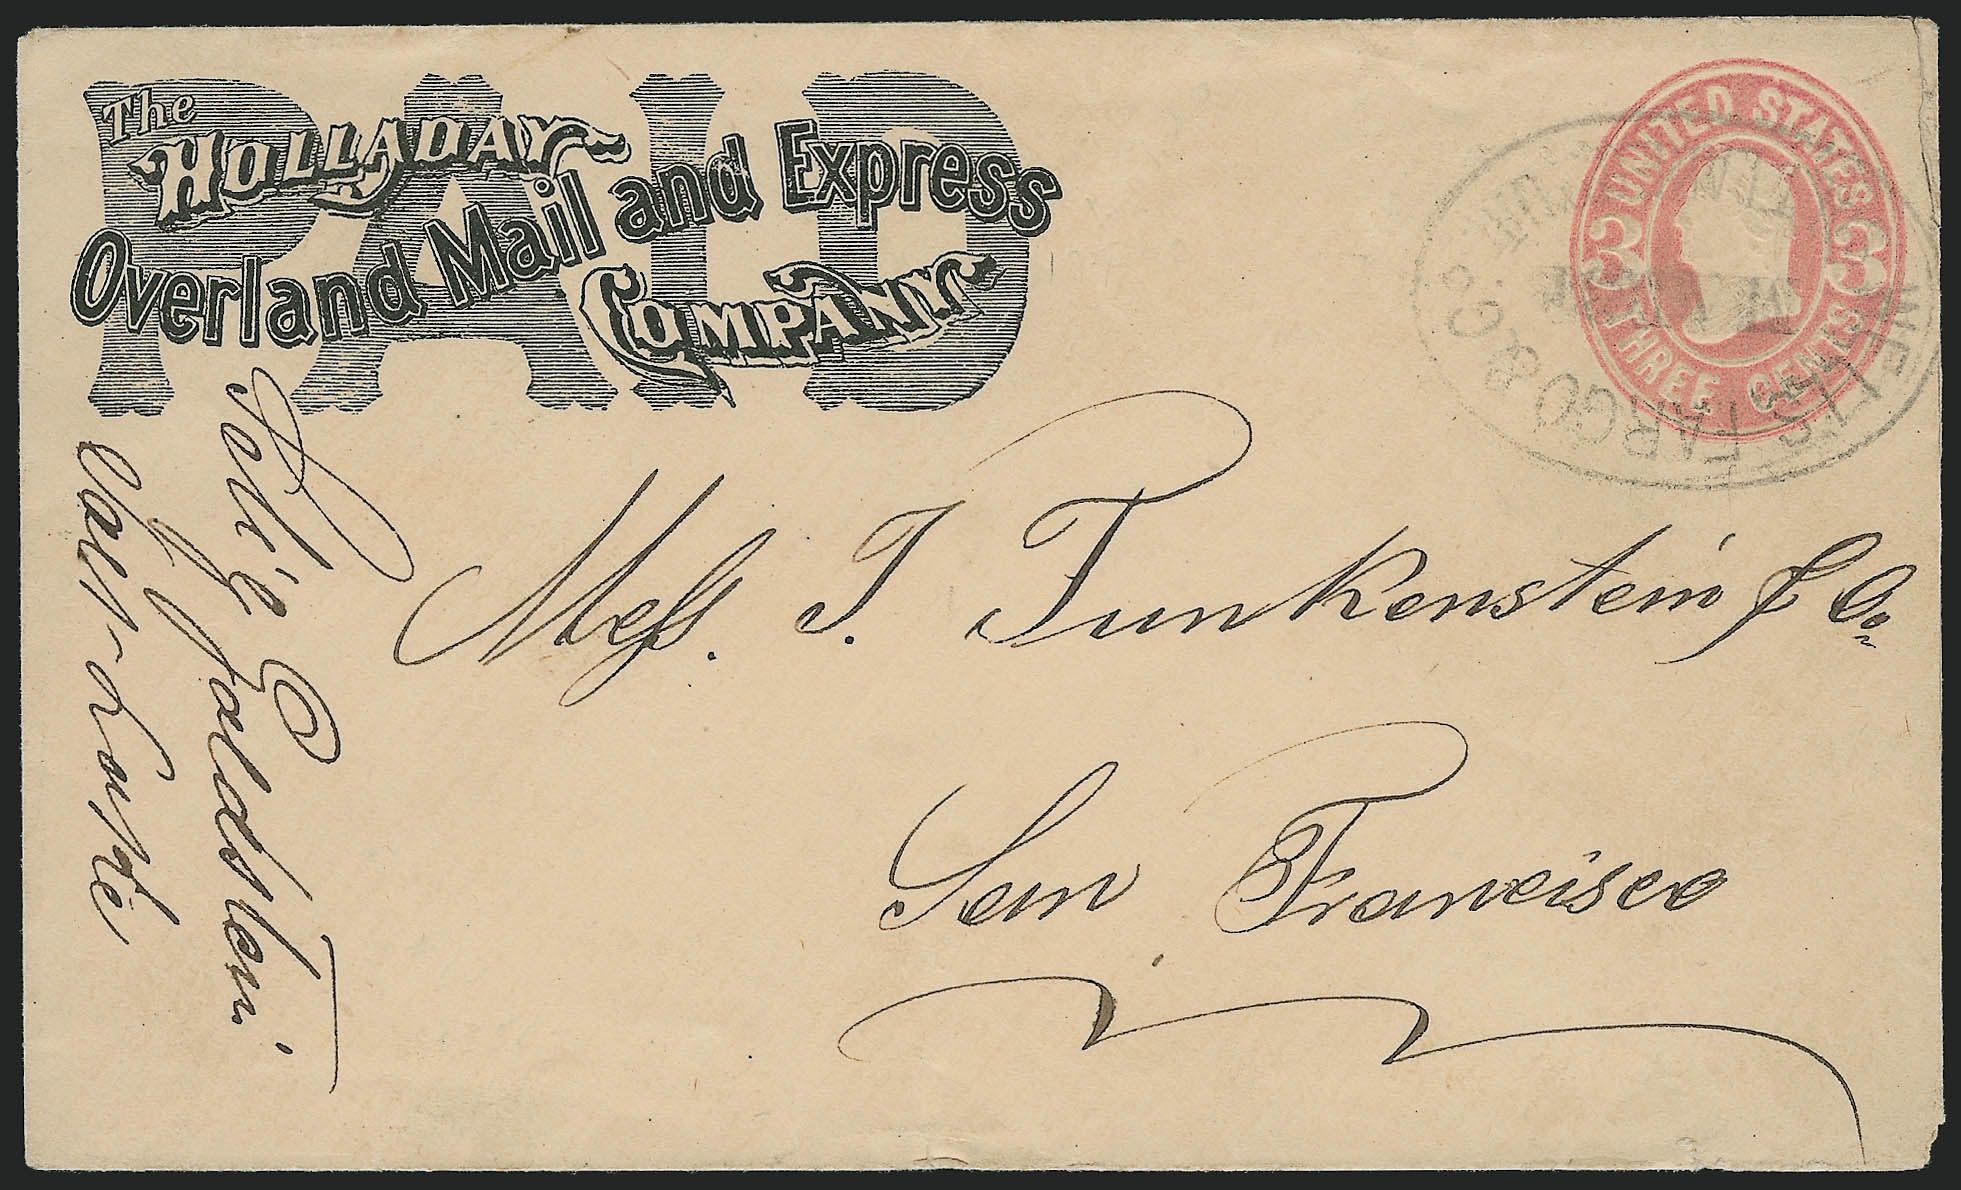 PAID
The
HOLLADAY
Overland Mail and Express
COMPANY
UNITED STATES
3 3
THREE CENTS
WELLS FARGO & Co.
Mess. I. Funkenstein & Co.
San Francisco
Goldstein